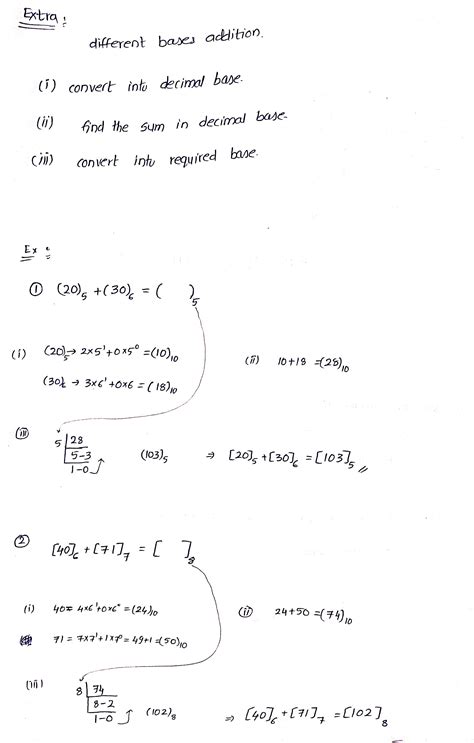 Extra :
different bases addition.
(i) convert into decimal base.
(ii) find the sum in decimal base.
(iii) convert into required base.
Ex :
① (20)₅ + (30)₆ = (    )₅
(i) (20)₅ → 2×5¹+0×5⁰ = (10)₁₀
(30)₆ → 3×6¹+0×6 = (18)₁₀
(ii) 10+18 = (28)₁₀
(iii) 5 | 28
5-3
1-0
(103)₅ ⇒ [20]₅+[30]₆ = [103]₅ //
② [40]₆ + [71]₇ = [    ]₈
(i) 40= 4×6¹+0×6° = (24)₁₀
71 = 7×7¹+1×7⁰ = 49+1 = (50)₁₀
(ii) 24+50 = (74)₁₀
(iii) 8 | 74
8-2
1-0
(102)₈ ⇒ [40]₆+[71]₇ = [102]₈